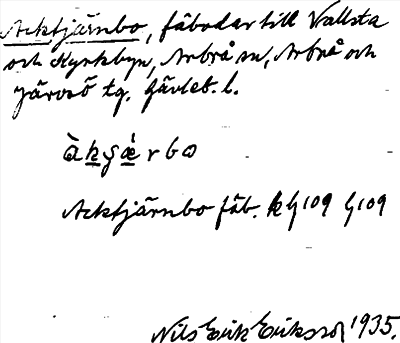 Acktjärnbo, fäbodar till Vallsta
och Kyrkbyn, Arbrå sn, Arbrå och
Järvsö tg. Gävleb. l.
Acktjärnbo fäb. kG109 G109
Nils Erik Eriksson 1935.